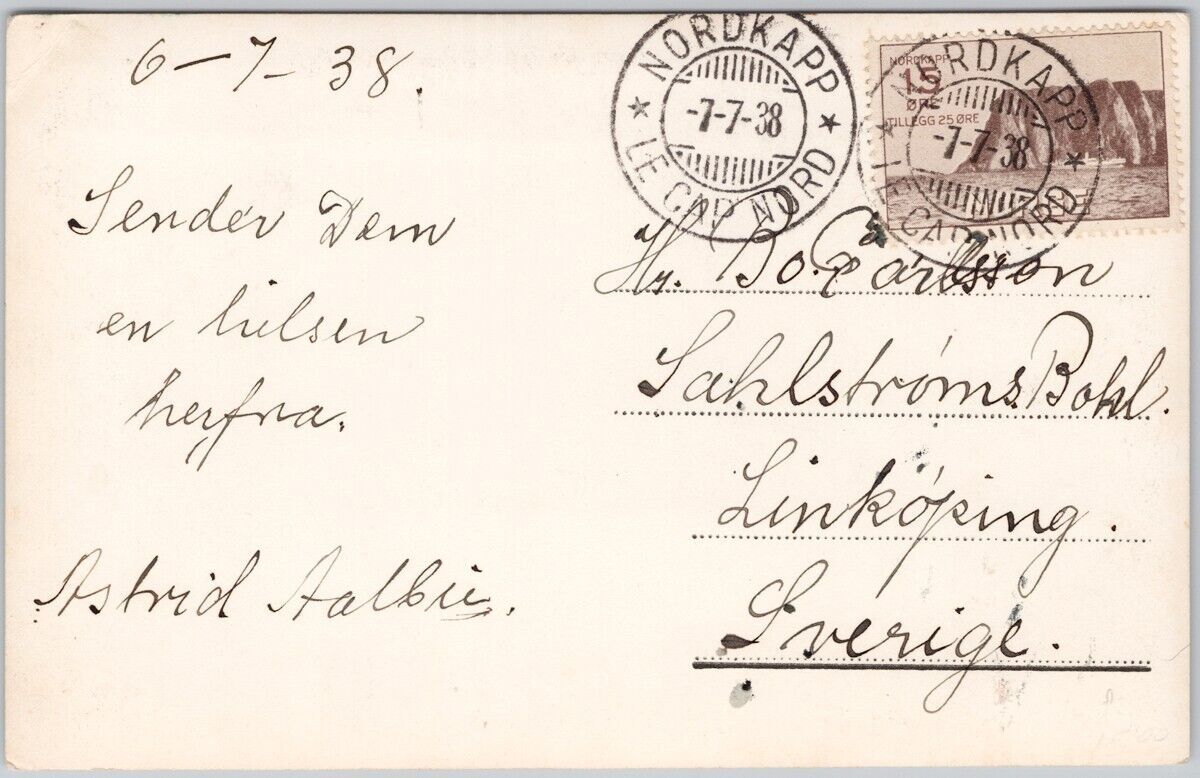 6-7-38.
Sender Dem
en hilsen
herfra.
Astrid Aalbu.
NORDKAPP
-7-7-38
LE CAP NORD
NORDKAPP
15
ØRE
TILLEGG 25 ØRE
NORDKAPP
-7-7-38
LE CAP NORD
Hr. Bo. Carlsson
Sahlstrøms Bokl.
Linköping.
Sverige.